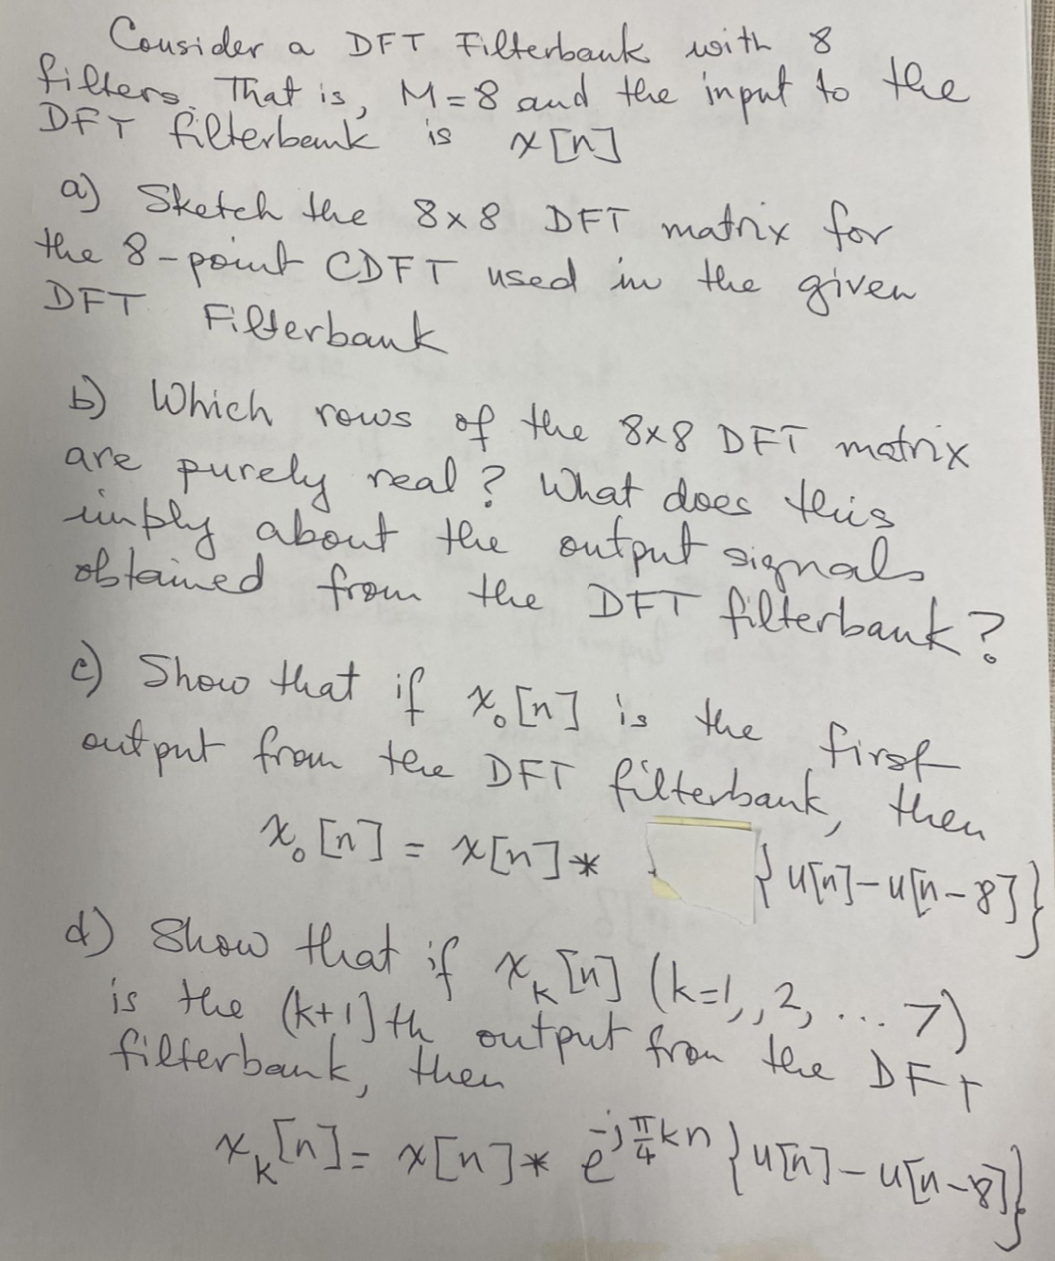 Consider a DFT Filterbank with 8
filters. That is, M=8 and the input to the
DFT filterbank is x[n]
a) Sketch the 8x8 DFT matrix for
the 8-point CDFT used in the given
DFT Filterbank
b) Which rows of the 8x8 DFT matrix
are purely real? What does this
imply about the output signals
obtained from the DFT filterbank?
c) Show that if x₀[n] is the first
output from the DFT filterbank, then
x₀[n] = x[n]* {u[n]-u[n-8]}
d) Show that if xₖ[n] (k=1,,2, ... 7)
is the (k+1]th output from the DFT
filterbank, then
xₖ[n]= x[n]* e^{-j π/4 kn} {u[n]-u[n-8]}